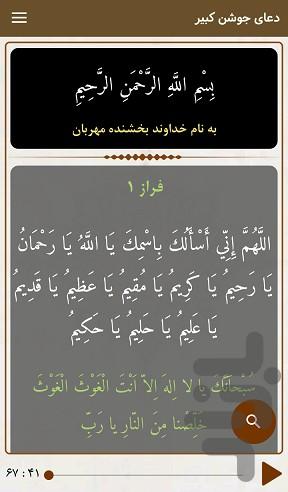 دعای جوشن کبیر
بِسْمِ اللَّهِ الرَّحْمَنِ الرَّحِيمِ
به نام خداوند بخشنده مهربان
فراز ۱
اللَّهُمَّ إِنِّي أَسْأَلُكَ بِاسْمِكَ يَا اللَّهُ يَا رَحْمَانُ
يَا رَحِيمُ يَا كَرِيمُ يَا مُقِيمُ يَا عَظِيمُ يَا قَدِيمُ
يَا عَلِيمُ يَا حَلِيمُ يَا حَكِيمُ
سُبْحَانَكَ يَا لا إِلهَ إِلاّ أَنْتَ الْغَوْثَ الْغَوْثَ
خَلِّصْنا مِنَ النّارِ يا رَبِّ
۶۷ : ۴۱